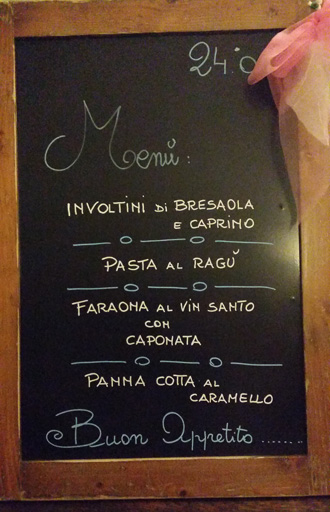 24.0
Menù:
INVOLTINI di BRESAOLA
E CAPRINO
PASTA AL RAGÙ
FARAONA AL VIN SANTO
CON
CAPONATA
PANNA COTTA AL
CARAMELLO
Buon Appetito.......